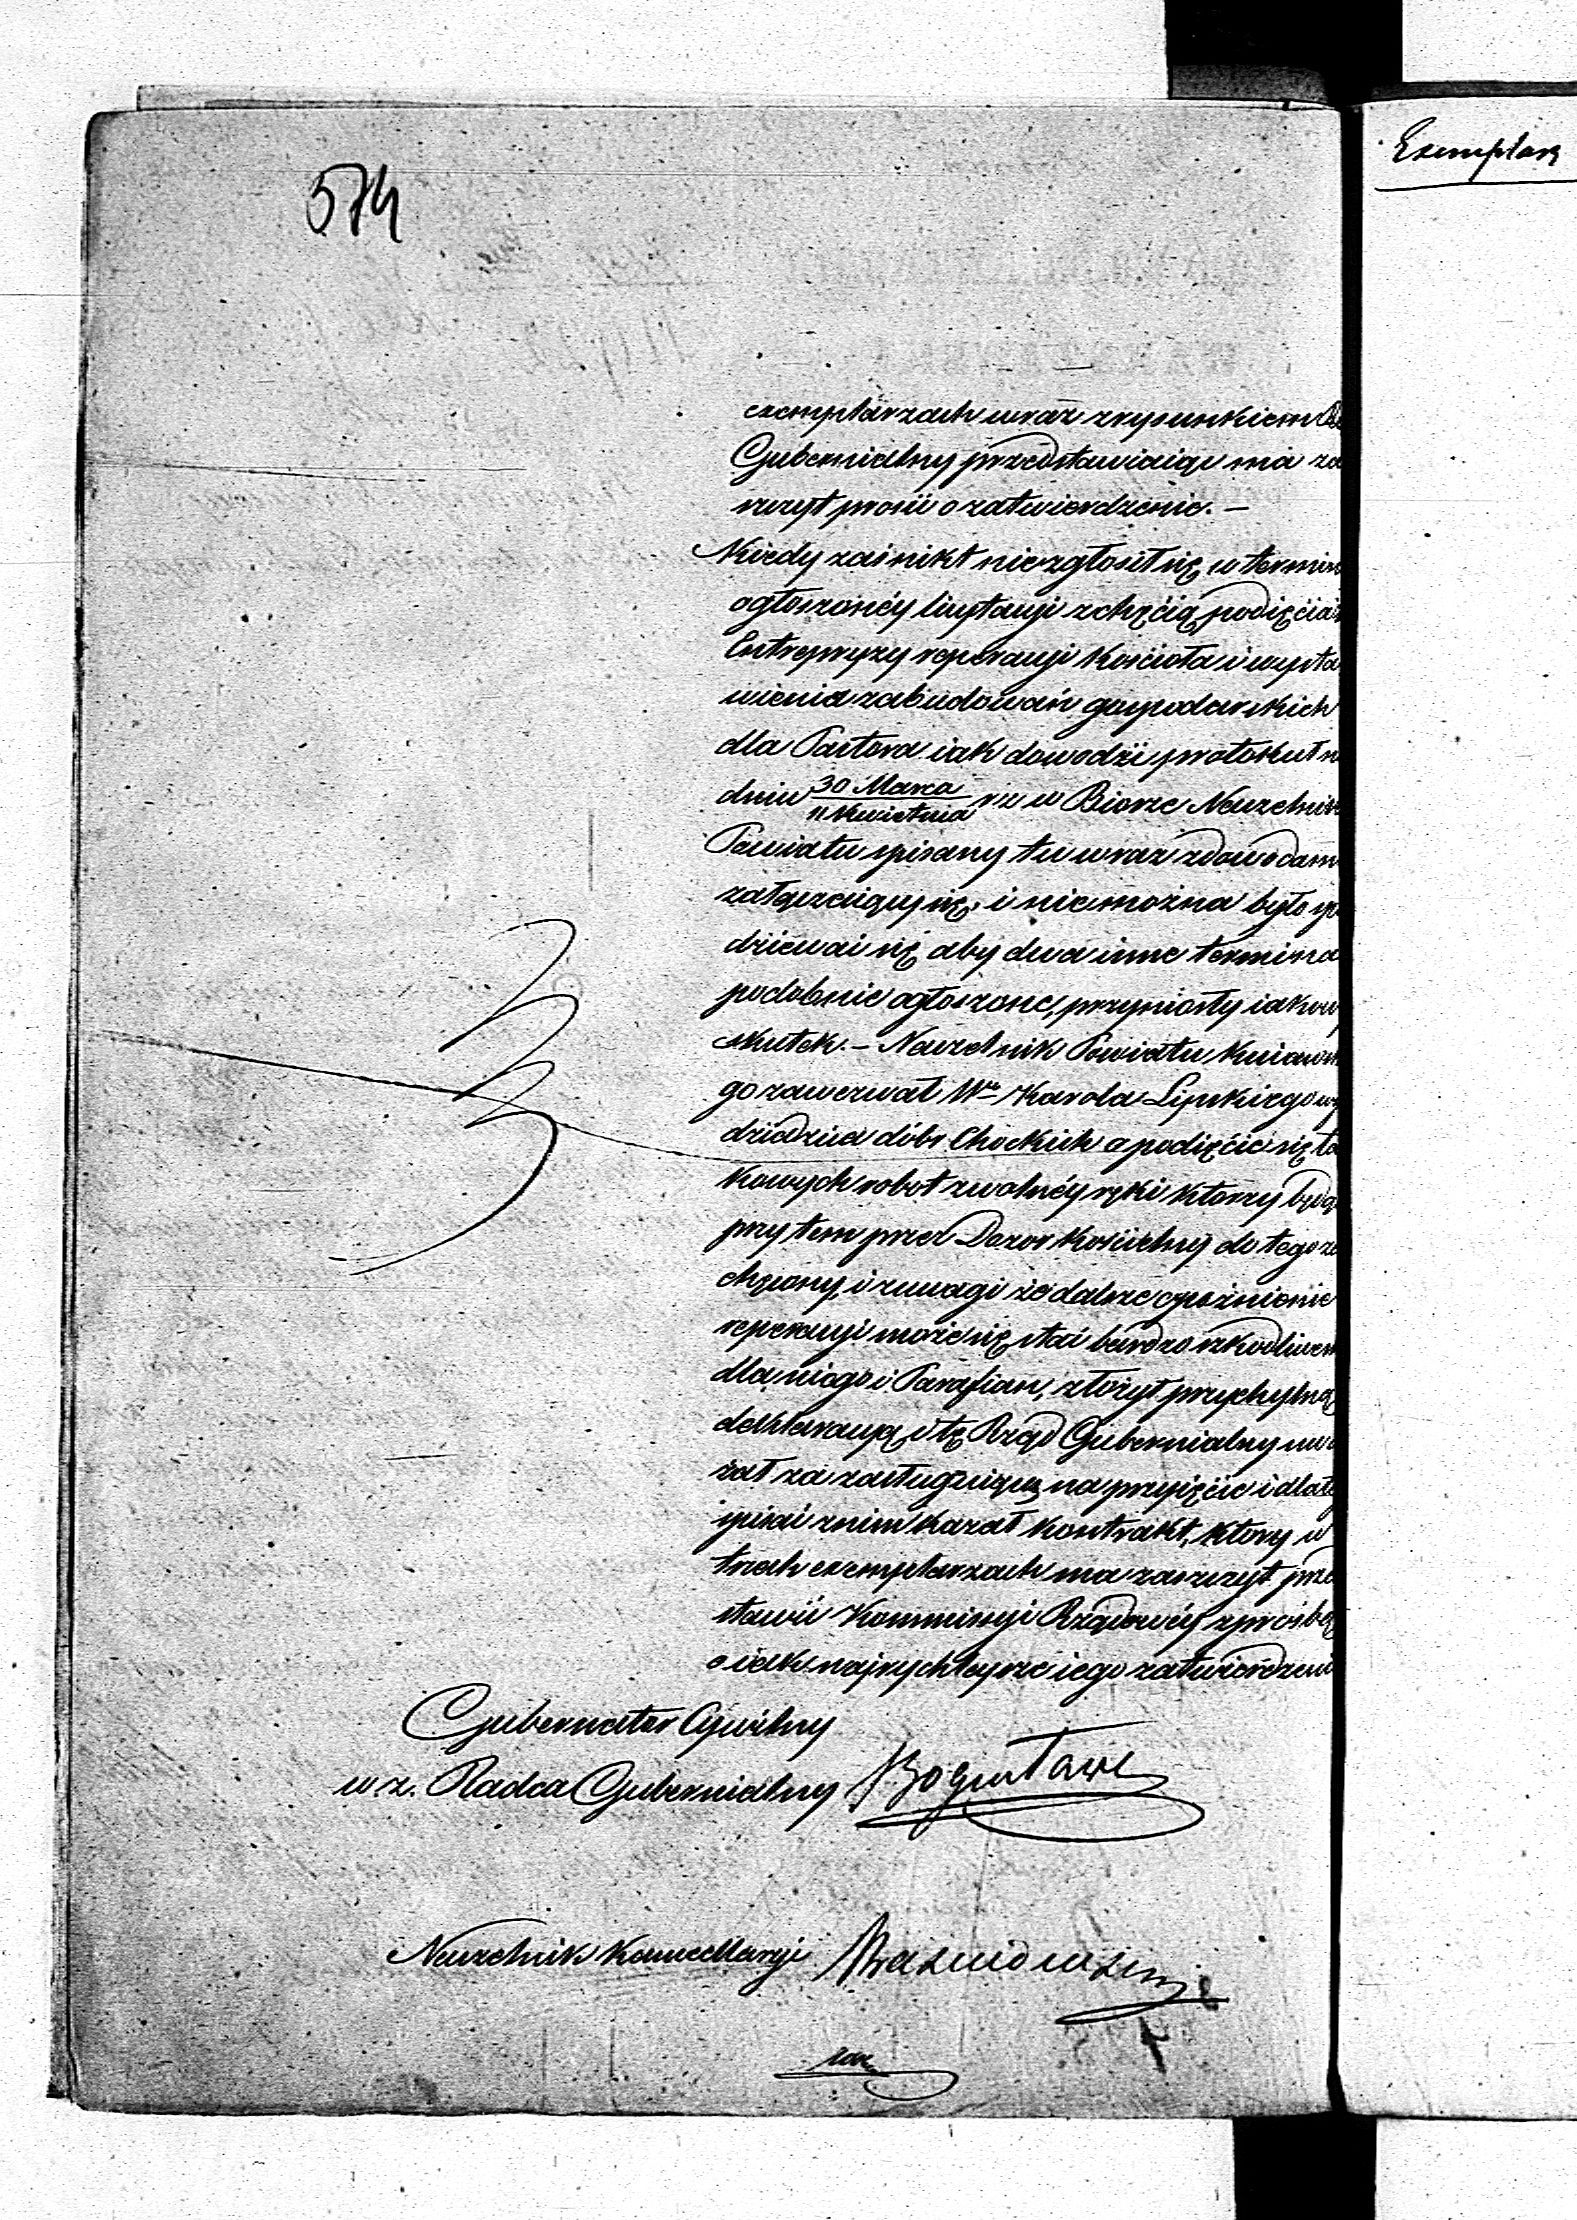 574
Exemplarz
exemplarzach wraz z rysunkiem
Gubernialny przedstawiaiąc ma za
szczyt prosić o zatwierdzenie. –
Kiedy zaś nikt nie zgłosił się w termin
ogłoszonéy licytacyi z chęcią podięcia
Entrepryzy reperacyi Kościoła i wysta
wienia zabudowań gospodarskich
dla Pastora iak dowodzi protokuł
dniu 30 Marca / 11 Kwietnia rz w Biorze Naczelnik
Powiatu spisany tu wraz z dowodam
załączaiący się, i nie można było sp
dziewać się aby dwa inne termina
podobnie ogłoszone, przyniosły iakow
skutek. – Naczelnik Powiatu Kuiawsk
go zawezwał Wo Karola Lipskiego
dziedzica dóbr Chockich o podięcie się ta
kowych robot z wolnéy ręki ktorzy będą
przytem przez Dozor Kościelny do tego za
chęcony, i z uwagi że dalsze opoźnienie
reperacyi może się stać bardzo szkodliwem
dla niego i Parafian, złożył przychylną
deklaracyą i tę Rząd Gubernialny uwa
żał za zasługuiącą na przyięcie i dlate
spisać z nim kazał kontrakt, ktory w
trzech exemplarzach ma zaszczyt prze
stawić Kommissyi Rządowéy z prośbą
o iak nayrychleysze iego zatwierdzeni
Gubernator Cywilny
w. z. Radca Gubernialny
Naczelnik Kancellaryi